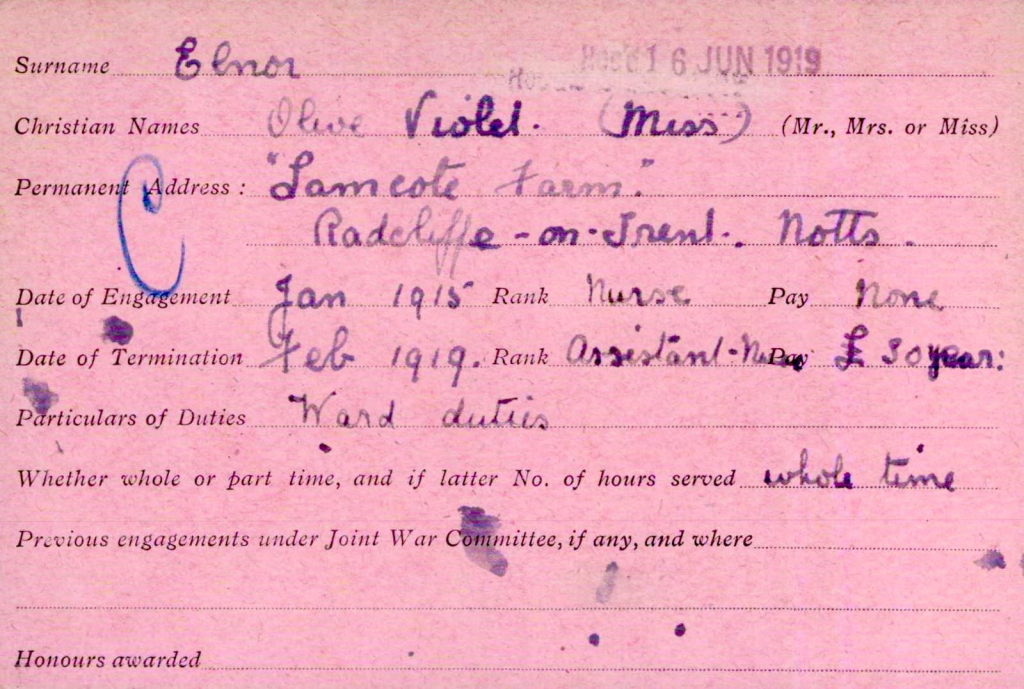 Surname Elnor 16 JUN 1919
Christian Names Olive Violet. (Miss) (Mr., Mrs. or Miss)
Permanent Address : "Lamcote Farm."
Radcliffe-on-Trent. Notts.
Date of Engagement Jan 1915 Rank Nurse Pay None
Date of Termination Feb 1919. Rank Assistant-Nurse Pay £30 year:
Particulars of Duties Ward duties
Whether whole or part time, and if latter No. of hours served whole time
Previous engagements under Joint War Committee, if any, and where
Honours awarded